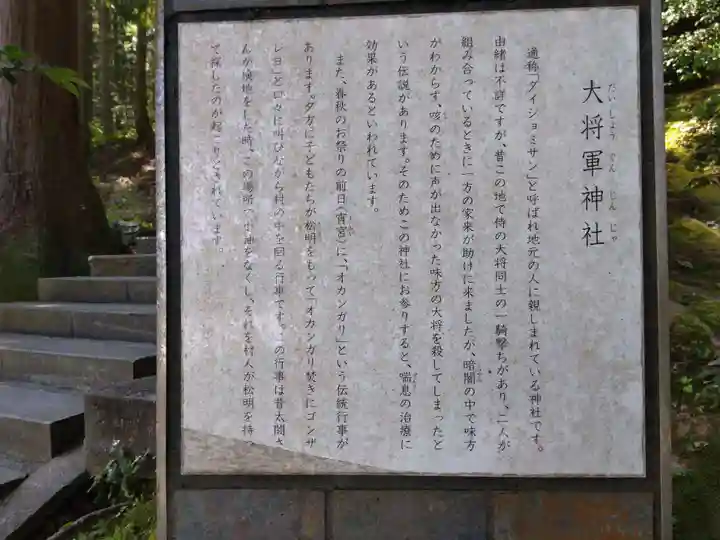 大将軍神社
たいしょう ぐん じん じゃ
通称「ダイショミサン」と呼ばれ地元の人に親しまれている神社です。
由緒は不詳ですが、昔この地で侍の大将同士の一騎撃ちがあり、二人が
組み合っているときに一方の家来が助けに来ましたが、暗闇の中で味方
がわからず、咳のために声が出なかった味方の大将を殺してしまったと
いう伝説があります。そのためこの神社にお参りすると、喘息の治療に
効果があるといわれています。
また、春秋のお祭りの前日(宵宮)に、「オカンガリ」という伝統行事が
あります。夕方に子どもたちが松明をもって「オカンガリ焚きにゴンザ
レヨ」と口々に叫びながら村の中を回る行事です。この行事は昔太閤さ
んが検地をした時、この場所で をなくし、それを村人が松明を持っ
て探したのが起こりとされています。